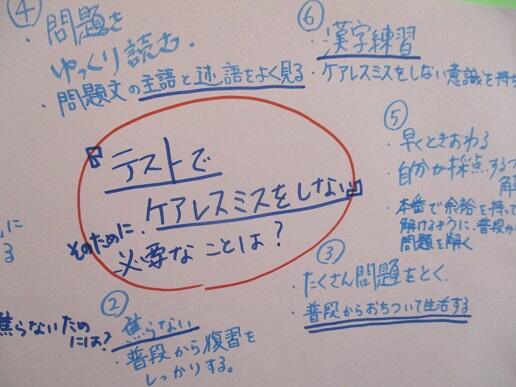 ④
・問題を
ゆっくり読む.
・問題文の主語と述語をよく見る
⑥
・漢字練習
・ケアレスミスをしない意識を持
⑤
・早くときおわる
・自分が採点する
解
・本番で余裕を持って
解けるように、普段か
問題を解く
『テストで
ケアレスミスをしない』
そのために、
必要なことは?
③
たくさん問題をとく、
・普段からおちついて生活する
②
焦らない
・普段から復習を
しっかりする。
に
る
焦らないため
には?